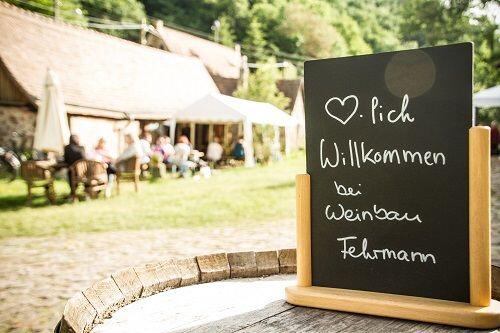 ♡-lich
Willkommen
bei
Weinbau
Fehrmann